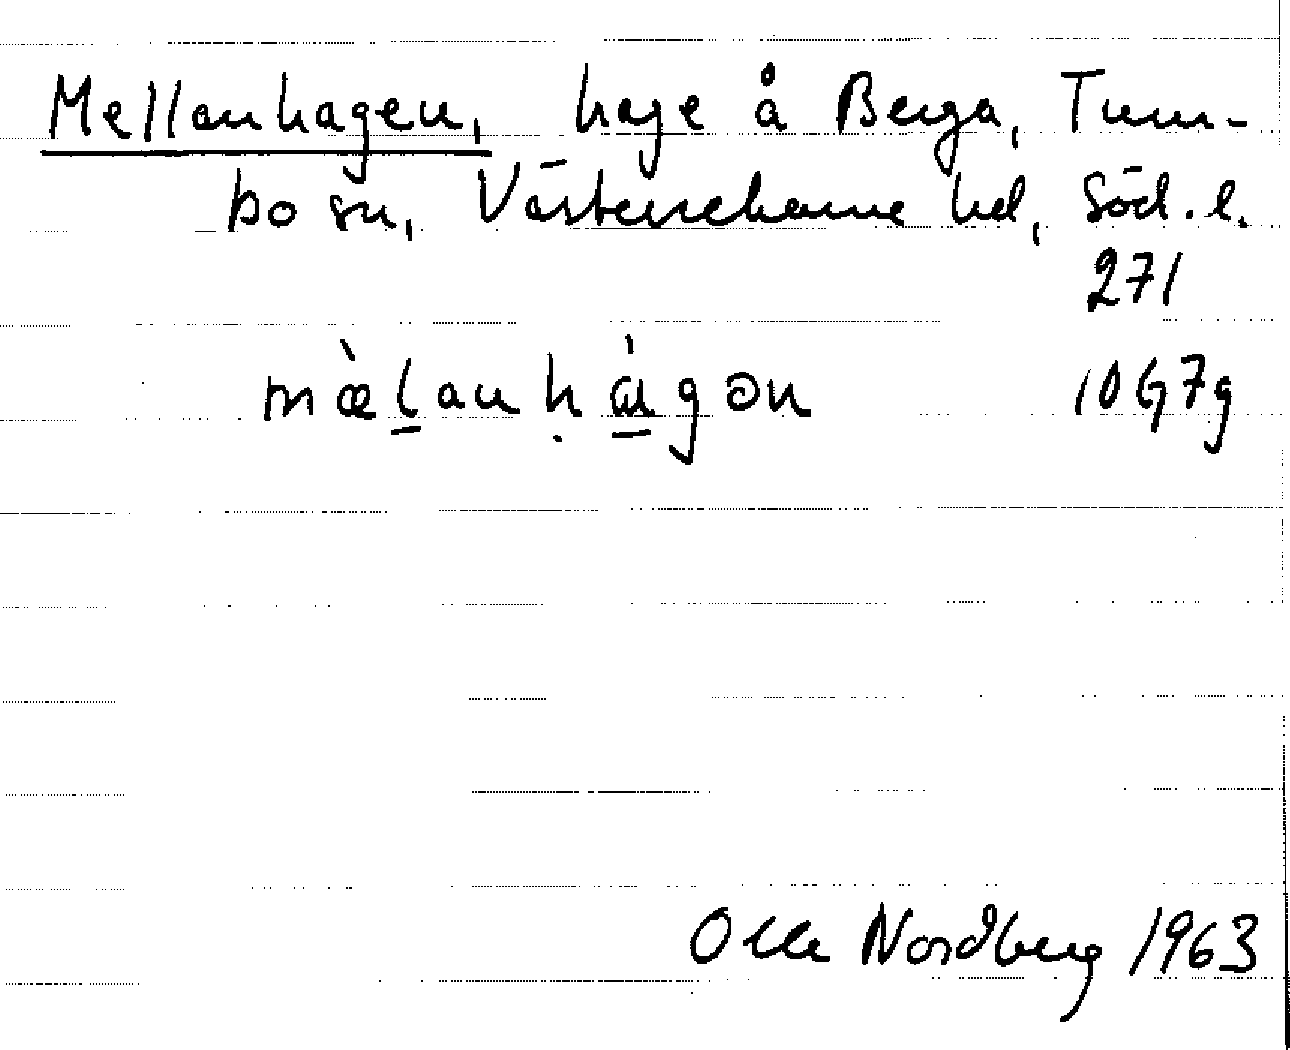 Mellanhagen, hage å Berga, Tum-
bo sn, Västerrekarne hd, Söd. l.
271
mæ̀l̠anḥɑ̠́gən 10G7g
Olle Nordberg 1963